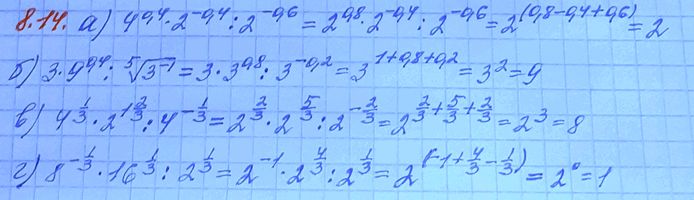 8.14. а) 4^{0,4} · 2^{-0,4} : 2^{-0,6} = 2^{0,8} · 2^{-0,4} : 2^{-0,6} = 2^{(0,8-0,4+0,6)} = 2
б) 3 · 9^{0,4} : \sqrt[5]{3^{-1}} = 3 · 3^{0,8} : 3^{-0,2} = 3^{1+0,8+0,2} = 3^2 = 9
в) 4^{\frac{1}{3}} · 2^{1\frac{2}{3}} : 4^{-\frac{1}{3}} = 2^{\frac{2}{3}} · 2^{\frac{5}{3}} : 2^{-\frac{2}{3}} = 2^{\frac{2}{3}+\frac{5}{3}+\frac{2}{3}} = 2^3 = 8
г) 8^{-\frac{1}{3}} · 16^{\frac{1}{3}} : 2^{\frac{1}{3}} = 2^{-1} · 2^{\frac{4}{3}} : 2^{\frac{1}{3}} = 2^{(-1+\frac{4}{3}-\frac{1}{3})} = 2^0 = 1